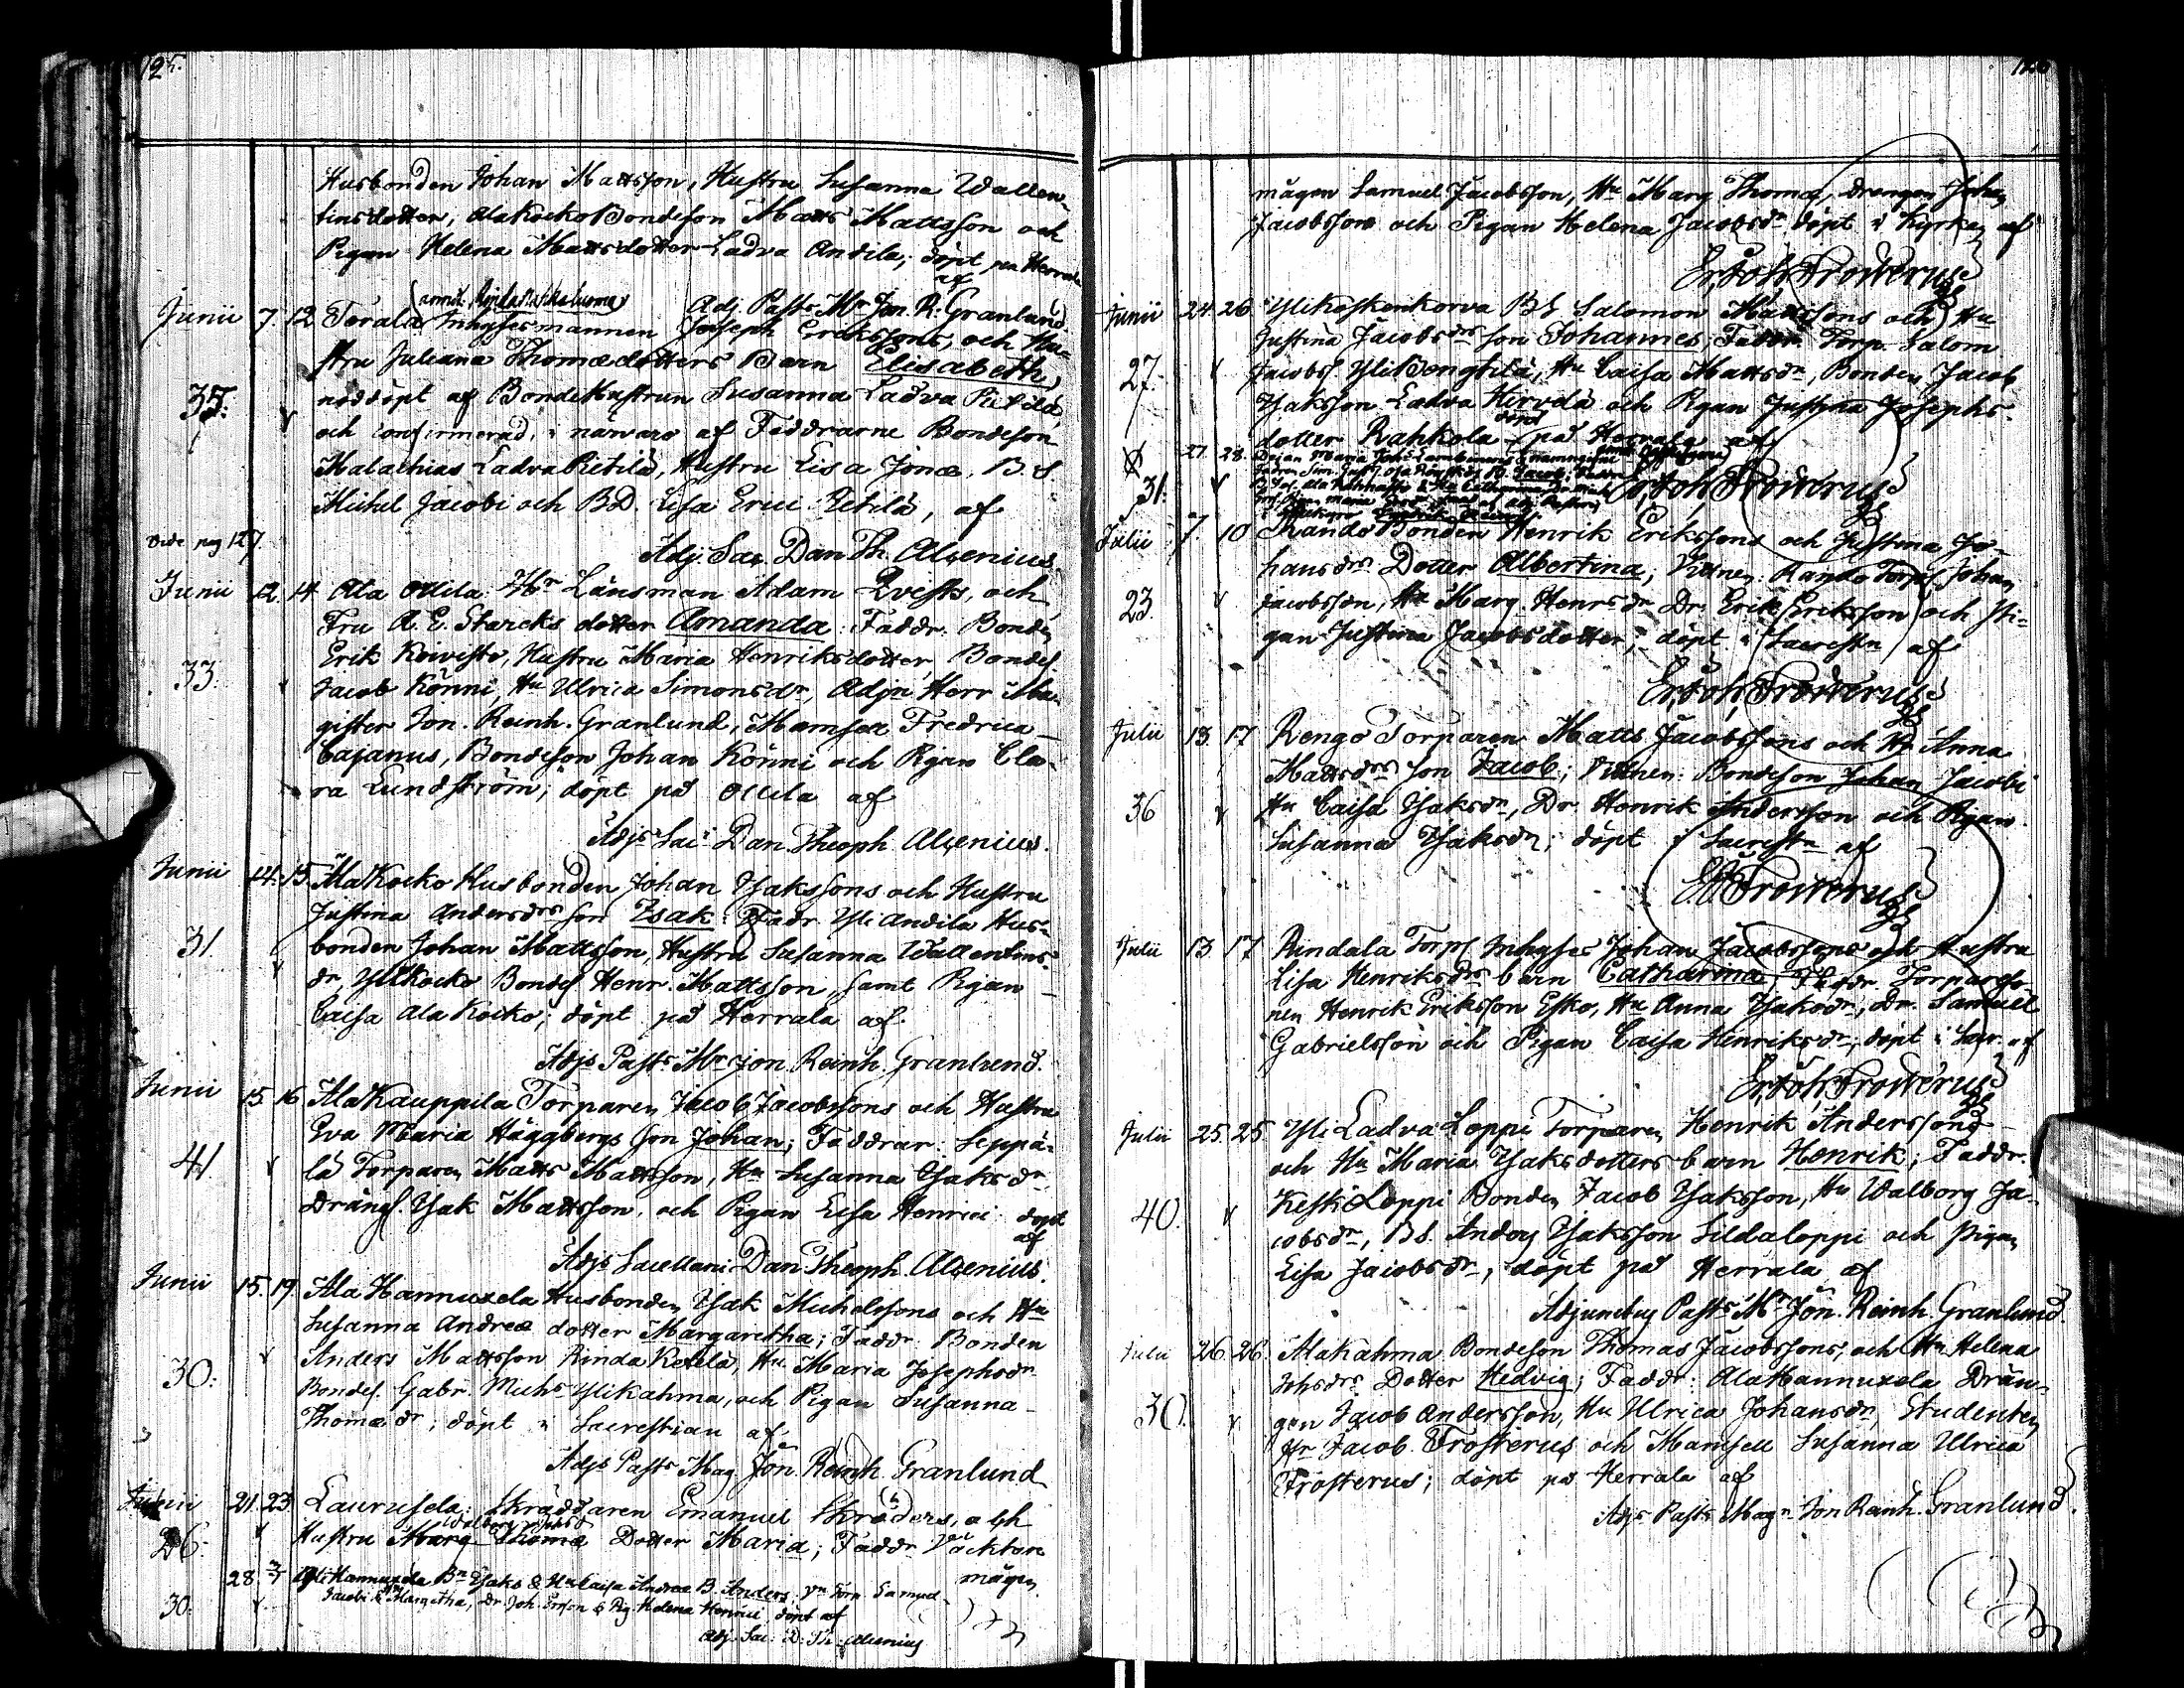 125.
Husbonden Johan Mattsson, Hustru Susanna Wallen-
tinsdotter, AlaKockoBondeson Matts Mattsson och
Pigan Helena Mattsdotter Ladva Andila; döpt på Herrala
af
Adj. Past. Mr Jon. R. Granlund.
Junii 7. 12 Torala Inhysesmannen Joseph Erikssons, och Hu-
stru Juliana Thomædotters Barn Elisabeth,
35. nöddöpt af BondeHustrun Susanna Ladva Pietilä
och confirmerad, i närvaro af Faddrarne Bondeson
Malachias LadvaPietilä, Hustru Lisa Jonæ, B.S.
Michel Jacobi och B.D. Lisa Erici Pietilä, af
vide pag 127.
Adj. Sac. Dan Th. Alcenius.
Junii 12. 14 Ala Ollila Hr Länsman Adam Qvists, och
Fru A. E. Starcks dotter Amanda: Faddr. Bonden
Erik Koivisto, Hustru Maria Henriksdotter, Bondes.
33. Jacob Könni, Hu Ulrica Simonsdr, Adjn Herr Ma-
gister Jon. Reinh. Granlund, Mamsell Fredrica
Cajanus, Bondeson Johan Könni och Pigan Cla-
ra Lundström; döpt på Ollila af
Adjs Saci Dan. Theoph. Alcenius.
Junii 14. 15 AlaKocko Husbonden Johan Isakssons och Hustru
Justina Andersdrs son Isak: Faddr. Yli Andila Hus-
31. bonden Johan Mattsson, Hustru Susanna Wallentins-
dr, YliKocko Bondes. Henr. Mattsson, samt Pigan
Caisa Ala Kocko; döpt på Herrala af
Adjs Pasts Mr Jon. Reinh. Granlund.
Junii 15. 16 AlaKauppila Torparen Jacob Jacobssons och Hustru
Eva Maria Häggbergs son Johan; Faddrar: Seppä-
41. lä Torparen Matts Mattsson, Hu Susanna Isaksdr
Drängs. Isak Mattsson, och Pigan Lisa Henrici döpt
af
Adjs Sacellani Dan Theoph. Alcenius.
Junii 15. 19. Ala Hannuxela Husbonden Isak Michelssons och Hu
Susanna Andreæ dotter Margaretha; Faddr. Bonden
30. Anders Mattsson Rinda Ketelä, Hu. Maria Josephsdr
Bondes. Gabr. Michs Ylikahma, och Pigan Susanna
Thomædr; döpt i Sacrestian af
Adjs Pasts Mag. Jon. Reinh. Granlund
Junii 21. 23 Laurusela: Skräddaren Emanuel Skröders, och
26. Hustru Marg. Thomæ Dotter Maria; Faddr.
mågen
28. YliHannuxela Bn Isaks & Hu Caisa Andreæ B. Anders; Vn Torp. Samuel
30. Jacobi & Margetha, Dr. Joh. Ersson & Pig. Helena Henrici, döpt af
Adj. Sac. D. Th. Alcenius
126
mågen Samuel Jacobsson, Hu Marg. Thomæ, Drengen Johan
Jacobsson och Pigan Helena Jacobsdr döpt i Kyrkan af
Er. Joh. Frosterus
Junii 24. 26 Ylikoskenkorva BS Salomon Mattssons och Hu
Justina Jacobsdrs son Johannes; Faddr. Torp. Salom
27. Jacobs. YliBengtilä, Hu Caisa Mattsdr, Bonden Jacob
Isaksson Ladva Hirvelä och Pigan Justina Josephs-
dotter Rahkola döpt på Herrala af
27. 28
31.
Er. Joh. Frosterus
Julii 7. 10 Rando Bonden Henrik Erikssons och Justina Jo-
hansdrs Dotter Albertina; Vitnen: Rando Torps. Johan
23. Jacobsson, Hu Marg. Henrsdr. Dr. Erik Eriksson och Pi-
gan Justina Jacobsdotter; döpt i Sacrestn af
Er. Joh. Frosterus
Julii 13. 17 Rengo Torparen Matts Jacobssons och H. Anna
Mattsdrs son Jacob; Vittnen: Bondeson Johan Jacobi
36 Hu Caisa Isaksdr, Dr. Henrik Andersson och Pigan
Susanna Isaksdr; döpt i Sacrestn af
Frosterus
Julii 13. 17 Rindala Torps Inhyses Johan Jacobssons och Hustru
Lisa Henriksdrs barn Catharina; Faddr. Torpareso-
nen Henrik Eriksson Esko, Hu Anna Isaksdr, Dr. Samuel
Gabrielsson och Pigan Caisa Henriksdr, döpt i Sacr. af
Er. Joh. Frosterus
Julii 25. 25. Yli Ladva Loppi Torparen Henrik Anderssons
och Hu Maria Isaksdotters barn Henrik; Faddr.
40. KeskiLoppi Bonden Jacob Isaksson, Hu Walborg Ja-
cobsdr, BS. Anders Isaksson Sildaloppi och Pigan
Lisa Jacobsdr, döpt på Herrala af
Adjunctus Pasts Mr Jon. Reinh. Granlund.
Julii 26. 26. AlaKahma Bondeson Thomas Jacobssons, och Hu Helena
Johsdrs Dotter Hedvig; Faddr: AlaHannuxela Drän-
30. gen Jacob Andersson, Hu Ulrica Johansdr, Studenten
Hr Jacob Frosterus och Mamsell Susanna Ulrica
Frosterus; döpt på Herrala af
Adjs Pasts Magr Jon Reinh. Granlund.